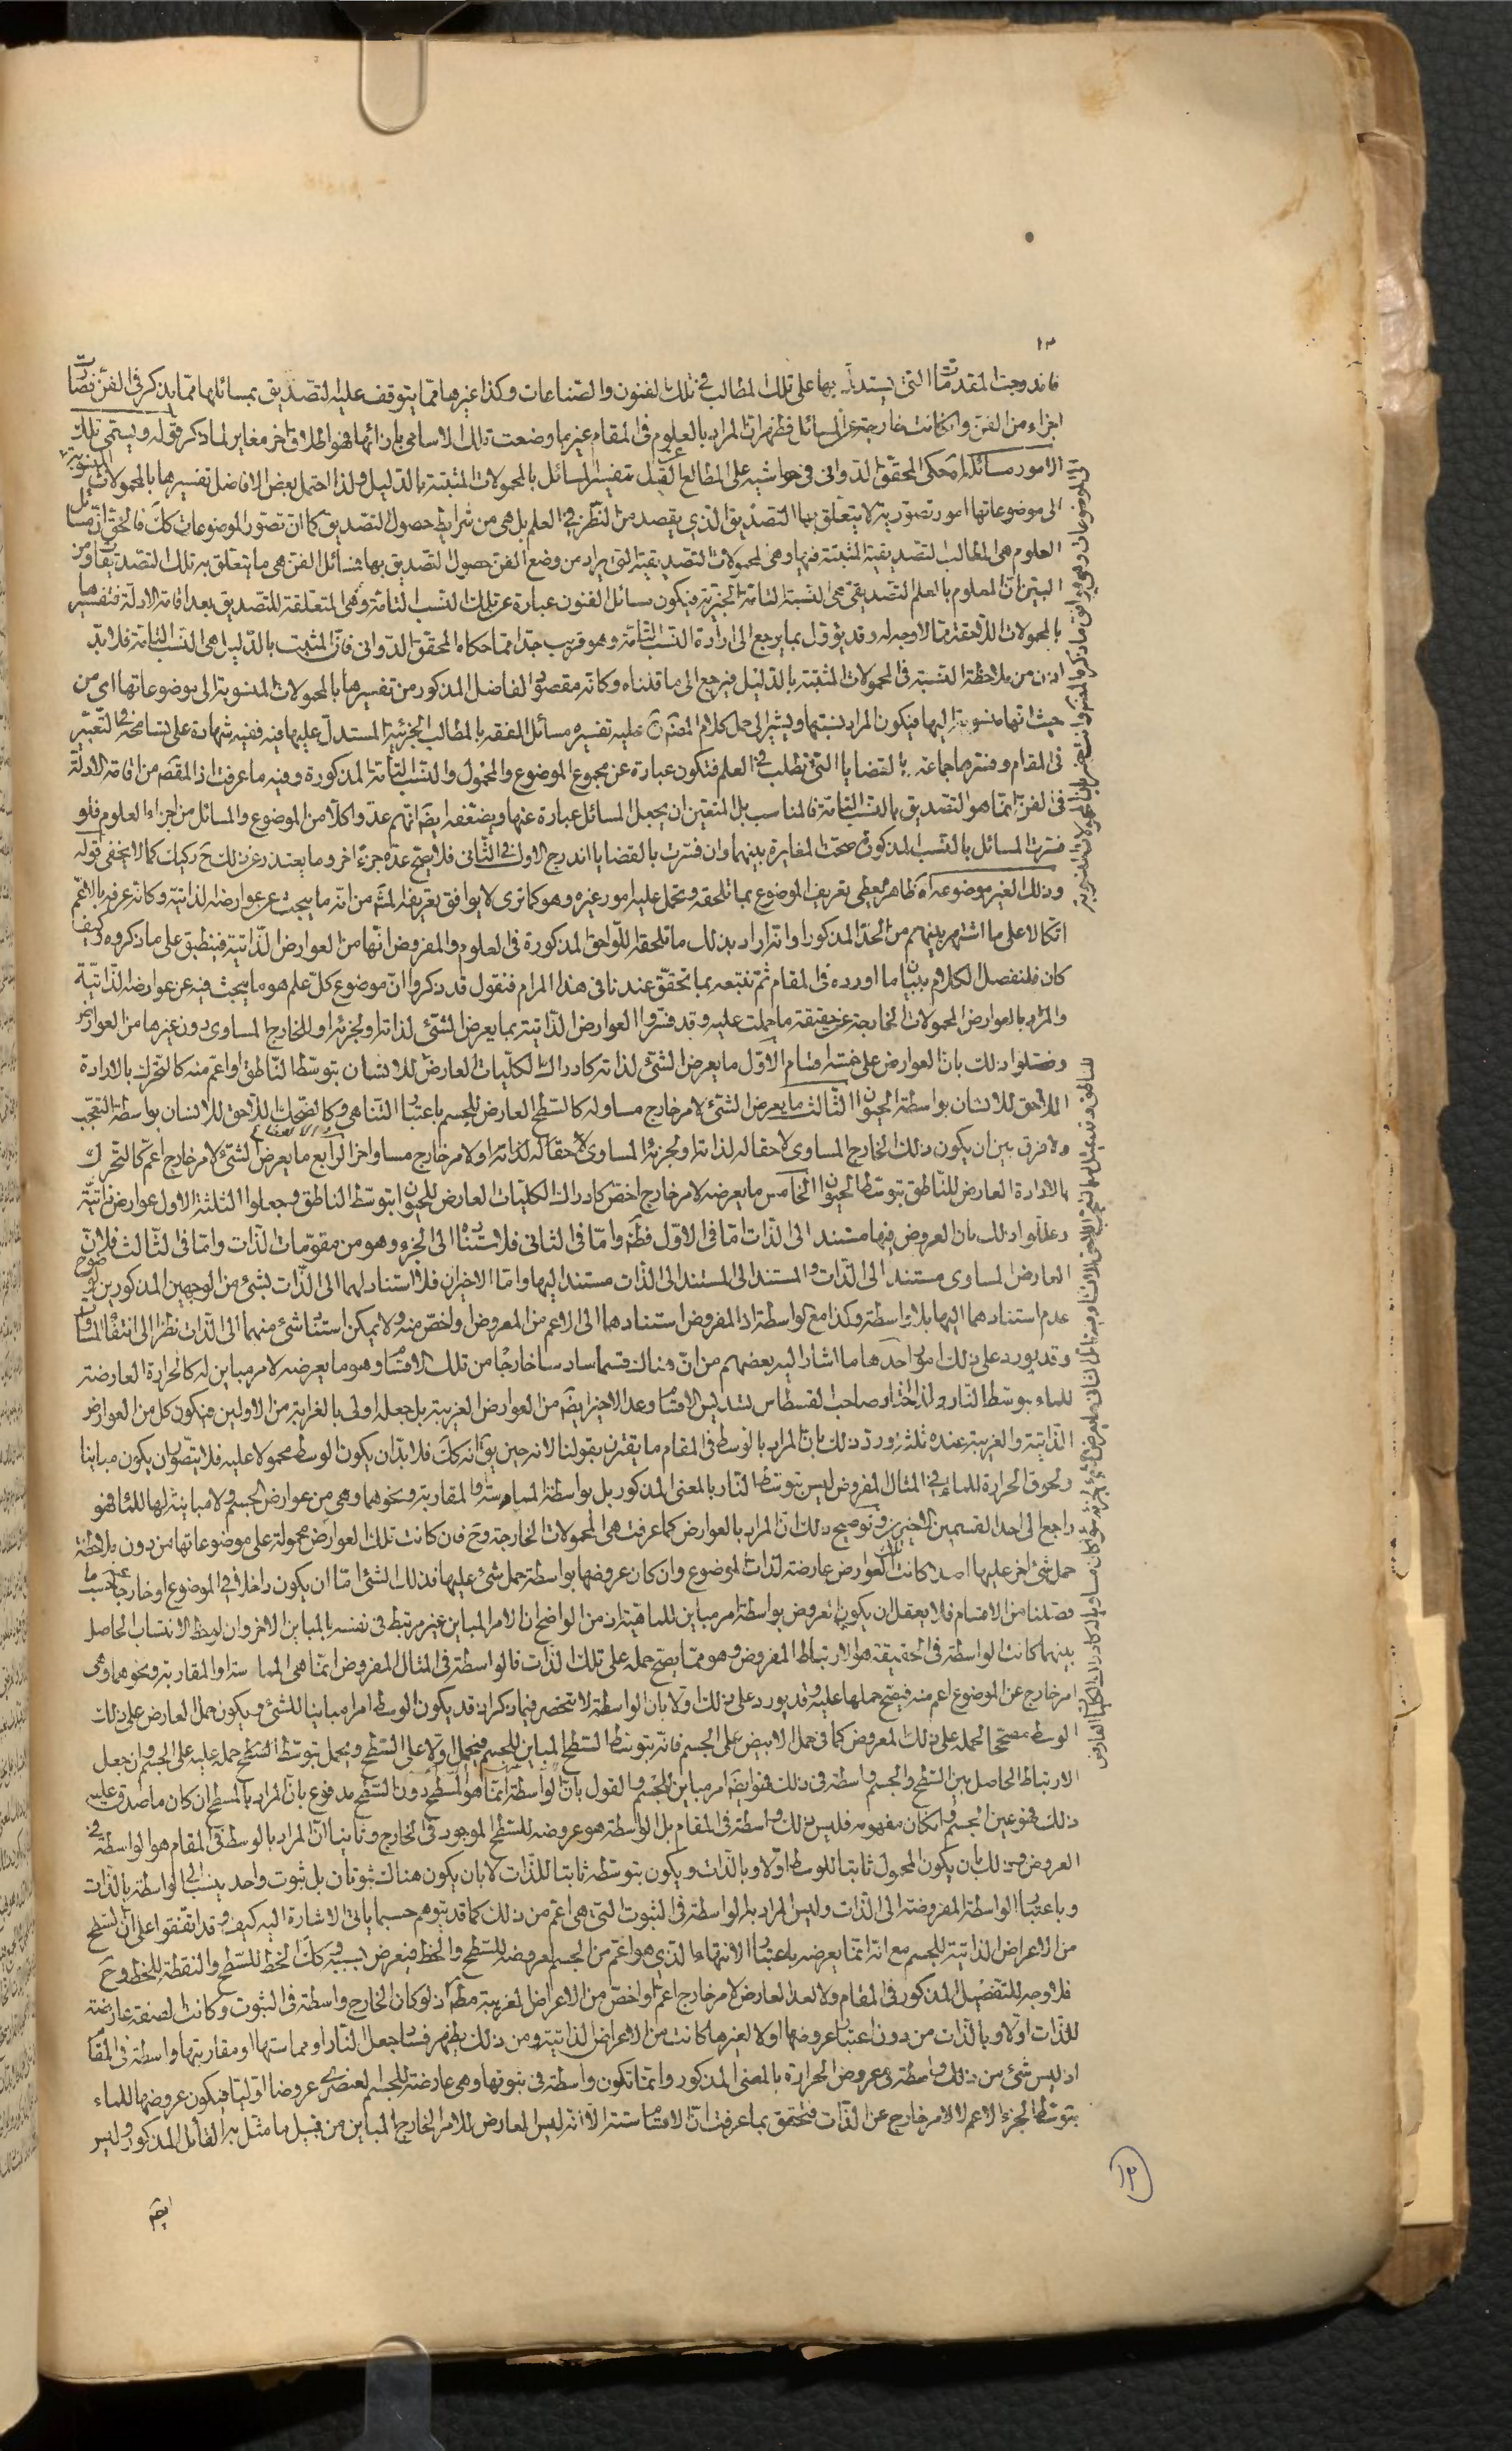 ١٣
فاندرجت المقدمات التي يستدل بها على تلك المطالب في تلك الفنون والصناعات وكذا غيرها مما يتوقف عليه التصديق بمسائلها مما يذكر في الفن فصارت
اجزاء من الفن وان كانت خارجة عن المسائل فظهر ان المراد بالعلوم في المقام غير ما وضعت تلك الاسامي بازائها فهو اطلاق اخر مغاير لما ذكر قوله ويسمى تلك
الامور مسائله حكى المحقق الدواني في حواشيه على المطالع القيل بتفسير المسائل بالمحمولات المثبتة بالدليل ولذا احتمل بعض الافاضل تفسيرها بالمحمولات المنسوبة
الى موضوعاتها امور تصورية لا يتعلق بها التصديق الذي يقصد من النظر في العلم بل هي من شرايط حصول التصديق كما ان تصور الموضوعات كك فالحق ان مسائل
العلوم هي المطالب التصديقية المثبتة فيها وهي المحمولات التصديقية التي يراد من وضع الفن حصول التصديق بها فمسائل الفن هي ما يتعلق به تلك التصديقات ومن
البين ان المعلوم بالعلم التصديقي هي النسبة التامة الخبرية فيكون مسائل الفنون عبارة عن تلك النسب التامة وهي المتعلقة للتصديق بعد اقامة الادلة فتفسيرها
بالمحمولات اللاحقة مما لا وجه له وقد يؤول بما يرجع الى ارادة النسب التامة وهو قريب جدا مما حكاه المحقق الدواني فان المثبت بالدليل هي النسب التامة فلا بد
اذن من ملاحظة النسبة في المحمولات المثبتة بالدليل فيرجع الى ما قلناه وكانه مقصود الفاضل المذكور من تفسيرها بالمحمولات المنسوبة الى موضوعاتها اي من
حيث انها منسوبة اليها فيكون المراد نسبتها ويشير الى حمل كلام المصنف عليه تفسيره مسائل الفقه بالمطالب الجزئية المستدل عليها فيه ففيه شهادة على تسامحه في التعبير
في المقام وفسرها جماعة بالقضايا التي تطلب في العلم فتكون عبارة عن مجموع الموضوع والمحمول والنسب التامة المذكورة وفيه ما عرفت اذ المقصم من اقامة الادلة
في الفن انما هو التصديق بالنسب التامة فالمناسب بل المتعين ان يجعل المسائل عبارة عنها ويضعفه ايضا انهم عدوا كلا من الموضوع والمسائل من اجزاء العلوم فلو
فسرت المسائل بالنسب المذكورة صحت المغايرة بينهما وان فسرت بالقضايا اندرج الاول في الثاني فلا يصح عده جزء اخر وما يعتذر عن ذلك ح ركيك كما لا يخفى قوله
وذلك الغير موضوعه اه ظاهره يعطي تعريف الموضوع بما تلحقه وتحمل عليه امور غيره وهو كما ترى لا يوافق تعريفه المشهور من انه ما يبحث عن عوارضه الذاتية وكانه عرفه بالاعم
اتكالا على ما اشتهر بينهم من الحد المذكور او انه اراد بذلك ما تلحقه اللواحق المذكورة في العلوم والمفروض انها من العوارض الذاتية فينطبق على ما ذكروه وكيف
كان فلنفصل الكلام ببيان ما اورده في المقام ثم نتبعه بما تحقق عندنا في هذا المرام فنقول قد ذكروا ان موضوع كل علم هو ما يبحث فيه عن عوارضه الذاتية
والمراد بالعوارض المحمولات الخارجة عن حقيقة ما حملت عليه وقد فسروا العوارض الذاتية بما يعرض الشيء لذاته او لجزئه او للخارج المساوي دون غيرها من العوارض
وفصلوا ذلك بان العوارض على خمسة اقسام الاول ما يعرض الشيء لذاته كادراك الكليات العارض للانسان بتوسط الناطق او اعم منه كالتحرك بالارادة
اللاحق للانسان بواسطة الحيوان الثالث ما يعرض الشيء لامر خارج مساو له كالسطح العارض للجسم باعتبار التناهي وكالضحك اللاحق للانسان بواسطة التعجب
ولا فرق بين ان يكون ذلك الخارج المساوي لاحقا له لذاته او لجزئه المساوي لاحقا له لذاته او لامر خارج مساو اخر الرابع ما يعرض الشيء لامر خارج اعم كالتحرك
بالارادة العارض للناطق بتوسط الحيوان الخامس ما يعرضه لامر خارج اخص كادراك الكليات العارض للحيوان بتوسط الناطق وجعلوا الثلثة الاول عوارض ذاتية
وعللوا ذلك بان العروض فيها مستند الى الذات اما في الاول فظ واما في الثاني فلاستناده الى الجزء وهو من مقومات الذات واما في الثالث فلان
العارض المساوي مستند الى الذات والمستند الى المستند الى الذات مستند اليها واما الاخيران فلا استناد لهما الى الذات بشيء من الوجهين المذكورين لوضوح
عدم استنادهما اليها بلا واسطة وكذا مع الواسطة اذ المفروض استنادهما الى الاعم من المعروض او اخص منه ولا يمكن استناد شيء منهما الى الذات نظرا الى انتفاء المساواة
وقد يورد على ذلك امور احدها ما اشار اليه بعضهم من ان هناك قسما سادسا خارجا من تلك الاقسام وهو ما يعرضه لامر مباين له كالحرارة العارضة
للماء بتوسط النار ولذا اختار صاحب القسطاس تسديس الاقسام وعد الاخير ايضا من العوارض الغريبة بل جعله اولى بالغرابة من الاولين فيكون كل من العوارض
الذاتية والغريبة عنده ثلثة ورد ذلك بان المراد بالوسط في المقام ما يقترن بقولنا لانه حين يق انه كك فلا بد ان يكون الوسط محمولا عليه فلا يتصور ان يكون مباينا
ولحوق الحرارة للماء في المثال المفروض ليس بتوسط النار بالمعنى المذكور بل بواسطة المماسة او المقاربة ونحوهما وهي من عوارض الجسم ولا مباينة لها للماء فهو
راجع الى احد القسمين الاخيرين وتوضيح ذلك ان المراد بالعوارض كما عرفت هي المحمولات الخارجة وح فان كانت تلك العوارض محمولة على موضوعاتها من دون ملاحظة
حمل شيء اخر عليها اصلا كانت تلك العوارض عارضة لذات الموضوع وان كان عروضها بواسطة حمل شيء عليها فذلك الشيء اما ان يكون داخلا في الموضوع او خارجا عنه حسب ما
فصلنا من الاقسام فلا يعقل ان يكون العروض بواسطة امر مباين للماهية اذ من الواضح ان الامر المباين غير مرتبط في نفسه بالمباين الاخر وان لوحظ الانتساب الحاصل
بينهما كانت الواسطة في الحقيقة هو الارتباط المفروض وهو مما يصح حمله على تلك الذات فالواسطة في المثال المفروض انما هي المماسة او المقاربة ونحوهما وهي
امر خارج عن الموضوع اعم منه فيصح حملها عليه وقد يورد على ذلك اولا بان الواسطة لا تنحصر فيما ذكر اذ قد يكون الوسط امرا مباينا للشيء ويكون حمل العارض على ذلك
الوسط مصححا لحمله على ذلك المعروض كما في حمل الابيض على الجسم فانه بتوسط السطح المباين للجسم فيحمل اولا على السطح ويحمل بتوسط السطح حمله عليه على الجسم وان جعل
الارتباط الحاصل بين السطح والجسم واسطة في ذلك فهو ايضا امر مباين للجسم والقول بان الواسطة انما هو المسطح دون السطح مدفوع بان المراد بالمسطح ان كان ما صدق عليه
ذلك فهو عين الجسم وان كان مفهومه فليس ذلك واسطة في المقام بل الواسطة هو عروضه للسطح الموجود في الخارج وثانيا ان المراد بالوسط في المقام هو الواسطة في
العروض وذلك بان يكون المحمول ثابتا للوسط اولا وبالذات ويكون بتوسطه ثابتا للذات لا بان يكون هناك ثبوتان بل ثبوت واحد ينسب الى الواسطة بالذات
وباعتبار الواسطة المفروضة الى الذات وليس المراد به الواسطة في الثبوت التي هي اعم من ذلك كما قد يتوهم حسبما ياتي الاشارة اليه كيف وقد اتفقوا على ان السطح
من الاعراض الذاتية للجسم مع انه انما يعرضه باعتبار الانتهاء الذي هو اعم من الجسم لعروضه للسطح والخط فيعرض بسببه وكك الخط للسطح والنقطة للخط وح
فلا وجه للتفصيل المذكور في المقام ولا لعد العارض لامر خارج اعم او اخص من الاعراض الغريبة مطلقا اذ لو كان الخارج واسطة في الثبوت وكانت الصفة عارضة
للذات اولا وبالذات من دون اعتبار عروضها اولا لغيرها كانت من الاعراض الذاتية ومن ذلك يظهر فساد جعل النار او مماستها او مقاربتها واسطة في المقام
اذ ليس شيء من ذلك واسطة في عروض الحرارة بالمعنى المذكور وانما تكون واسطة في ثبوتها وهي عارضة للجسم العنصري عروضا اوليا فيكون عروضها للماء
بتوسط الجزء الاعم لا لامر خارج عن الذات فتحقق بما عرفت ان الاقسام ستة الا انه ليس العارض للامر الخارج المباين من قبيل ما مثل به القائل المذكور وليس
ايضم
١٣